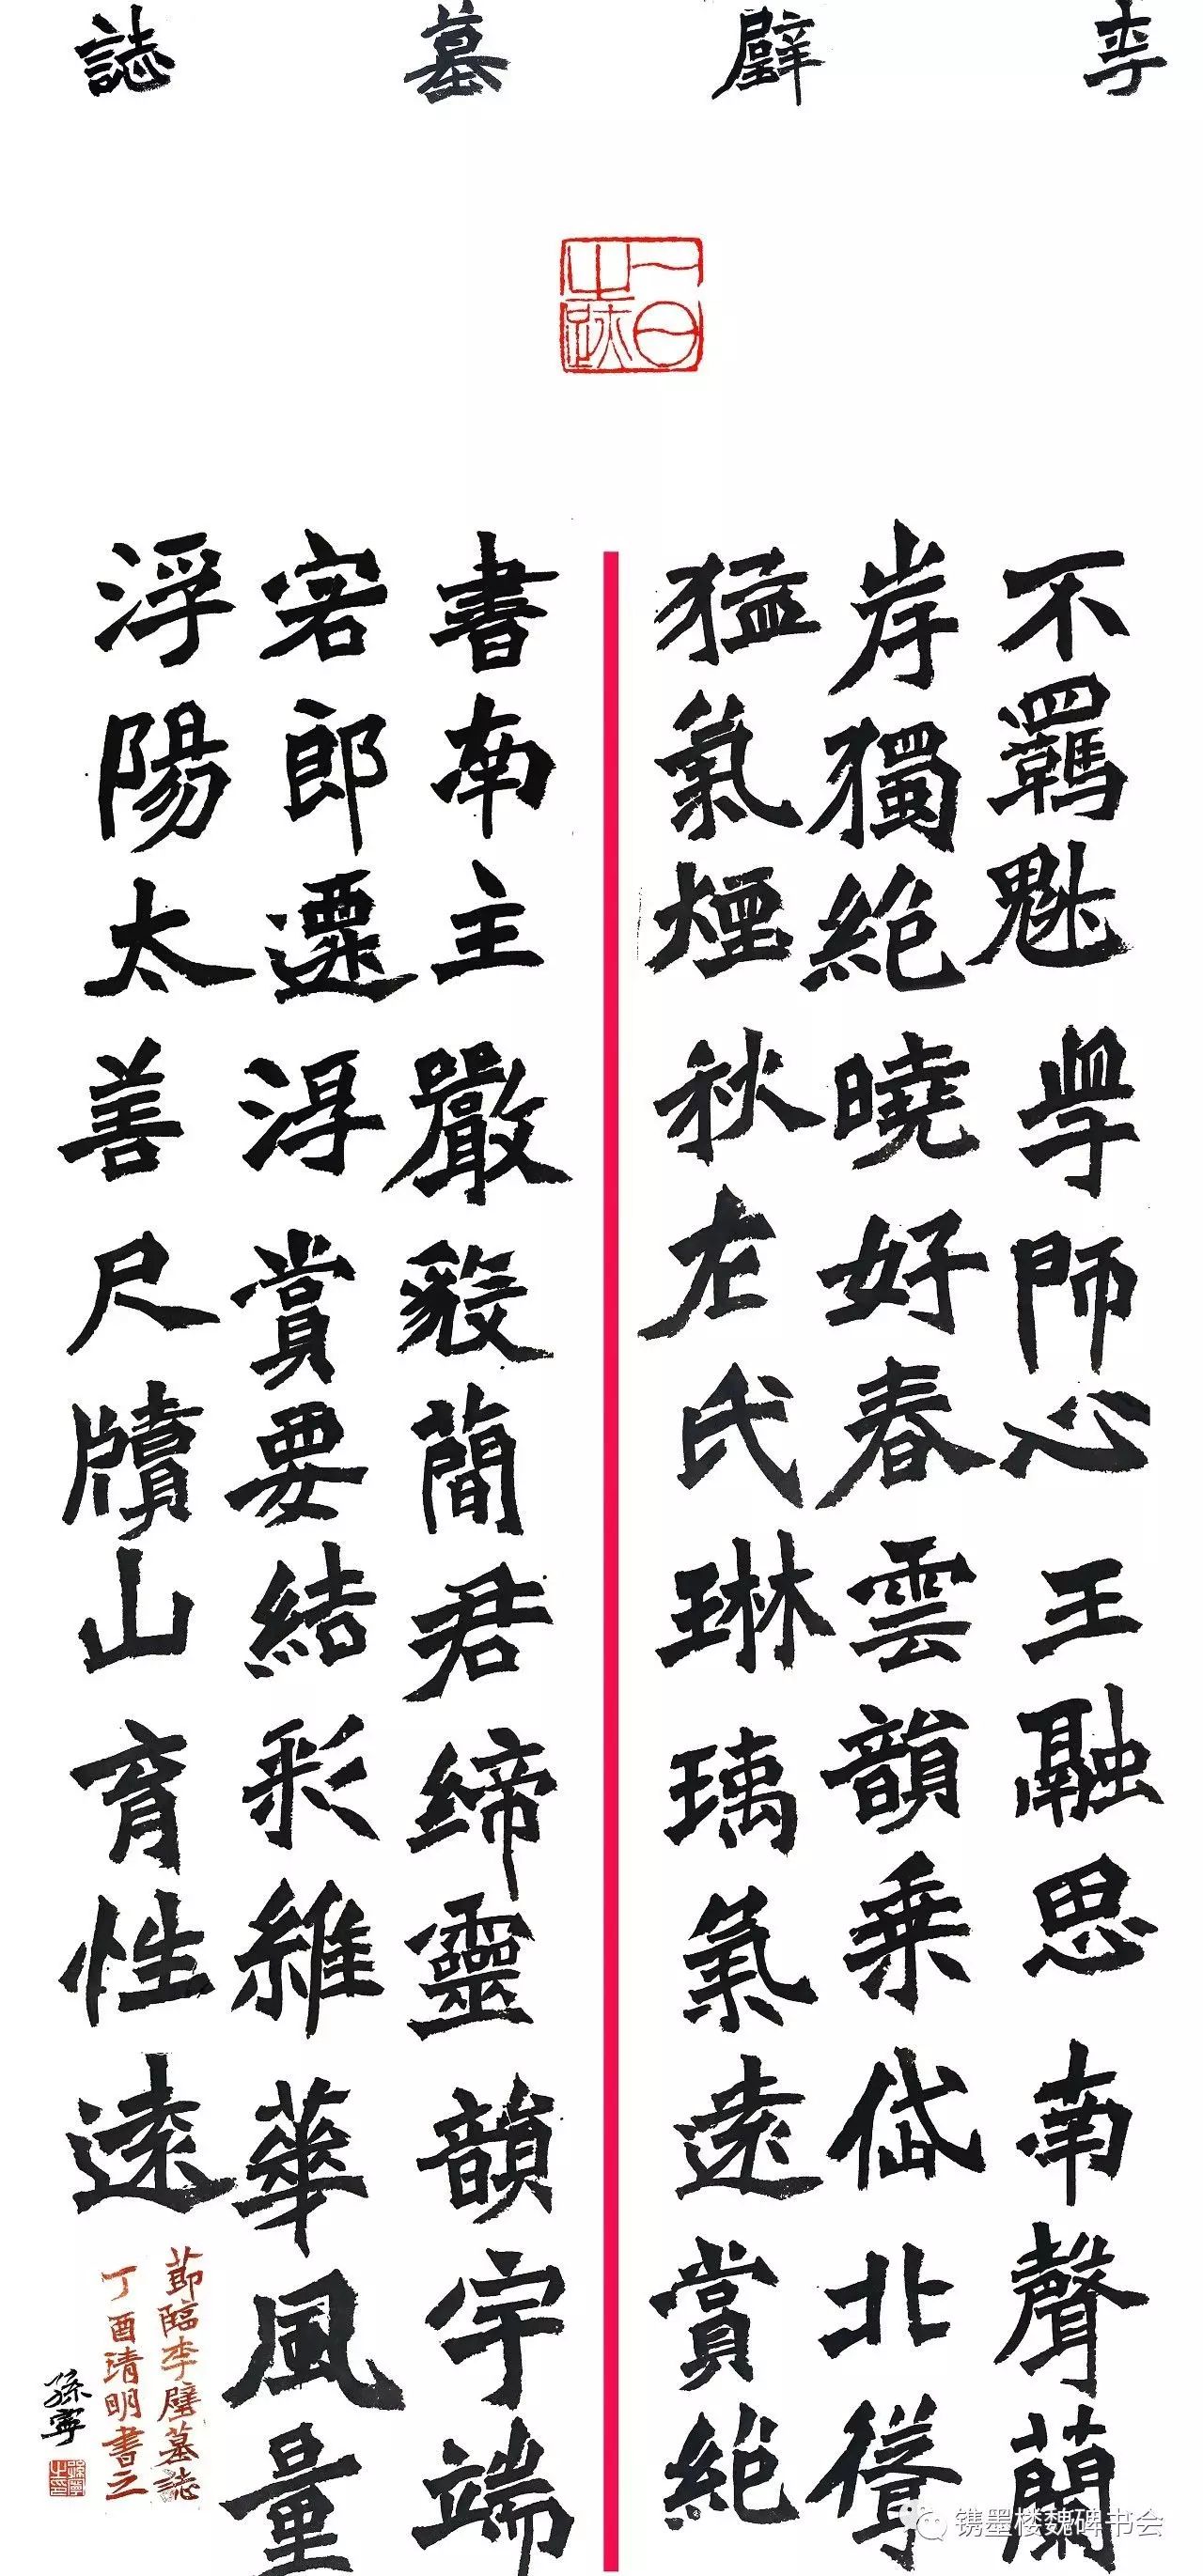 李璧墓誌
一日之跡
不羈魁學師心王融思南聲蘭
岸獨絕曉好春雲韻乗岱北聳
猛氣煙秋左氏琳璃氣遠賞絕
書南主嚴毅簡君締靈韻宇端
客郎遷浮賞要結彩維華風量
浮陽太善尺牘山育性遠
節臨李璧墓誌
丁酉清明書之
孫寧
孫寧之印
镌墨楼魏碑书会